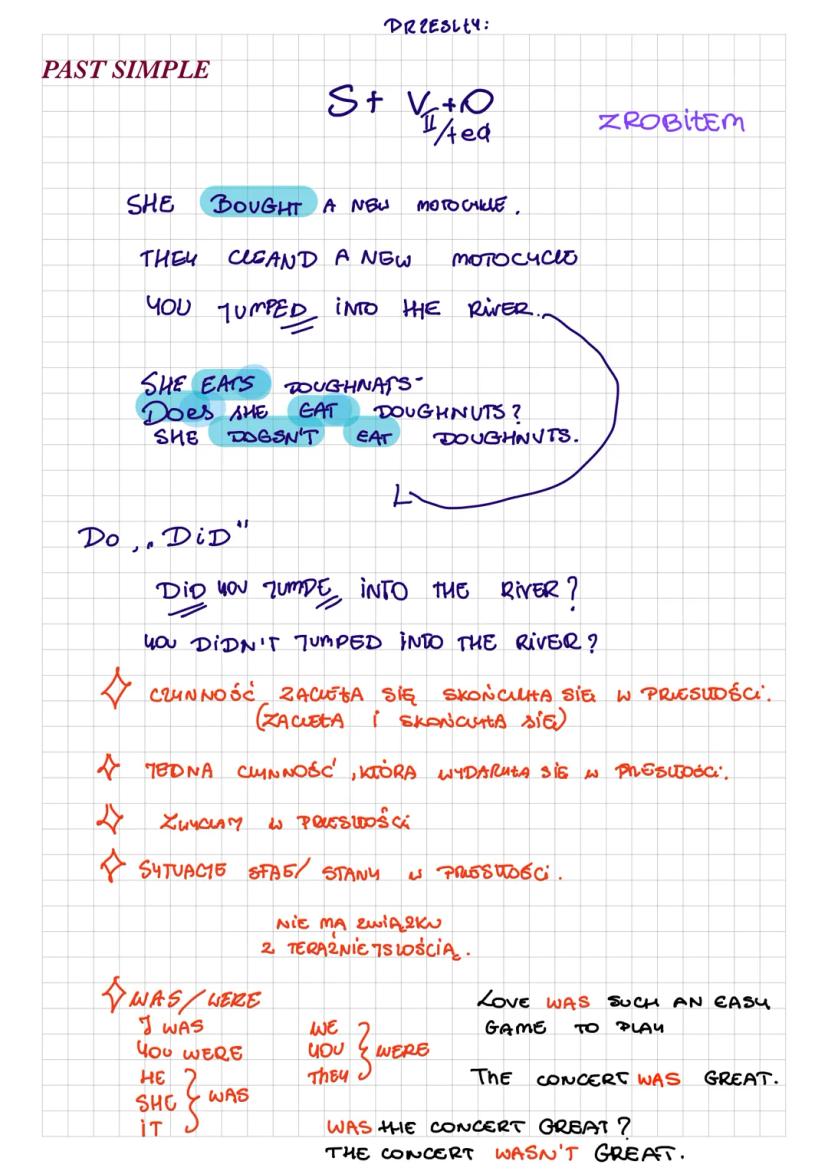 PRZESZŁY:
PAST SIMPLE
S + V II/+ed + O
ZROBIŁEM
SHE BOUGHT A NEW MOTOCYKLE.
THEY CLEAND A NEW MOTOCYCLE
YOU JUMPED INTO THE RIVER.
SHE EATS DOUGHNATS-
DOES SHE EAT DOUGHNUTS?
SHE DOESN'T EAT DOUGHNUTS.
DO ,,DID"
DID YOU JUMPE INTO THE RIVER?
YOU DIDN'T JUMPED INTO THE RIVER?
CZYNNOŚĆ ZACZĘŁA SIĘ SKOŃCZYŁA SIĘ W PRZESZŁOŚCI.
(ZACZĘŁA I SKOŃCZYŁA SIĘ)
JEDNA CZYNNOŚĆ, KTÓRA WYDARZYŁA SIĘ W PRZESZŁOŚCI.
ZWYCZAJ W PRZESZŁOŚCI
SYTUACJE STAŁE/ STANY W PRZESZŁOŚCI.
NIE MA ZWIĄZKU
Z TERAŹNIEJSZOŚCIĄ.
WAS/WERE
I WAS
YOU WERE
HE
SHE WAS
IT
WE
YOU WERE
THEY
LOVE WAS SUCH AN EASY
GAME TO PLAY
THE CONCERT WAS GREAT.
WAS THE CONCERT GREAT?
THE CONCERT WASN'T GREAT.